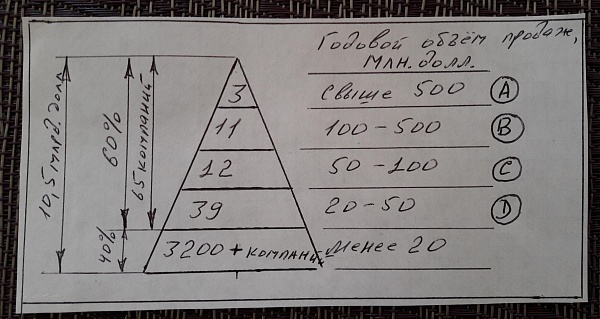 Годовой объём продаж,
млн. долл.
3 свыше 500 A
11 100-500 B
12 50-100 C
39 20-50 D
3200+ компаний менее 20
10,5 млрд. долл.
60%
65 компаний
40%